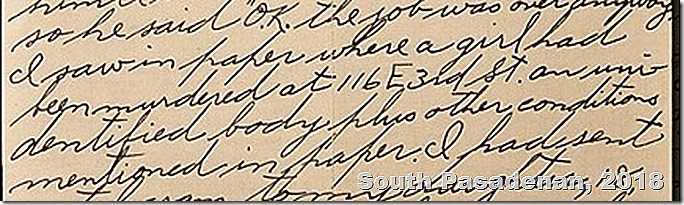 so he said "O.K. the job was over anyway
I saw in paper where a girl had
been murdered at 116 E 3rd St. an uni-
dentified body plus other conditions
mentioned in paper. I had sent
South Pasadenan, 2018